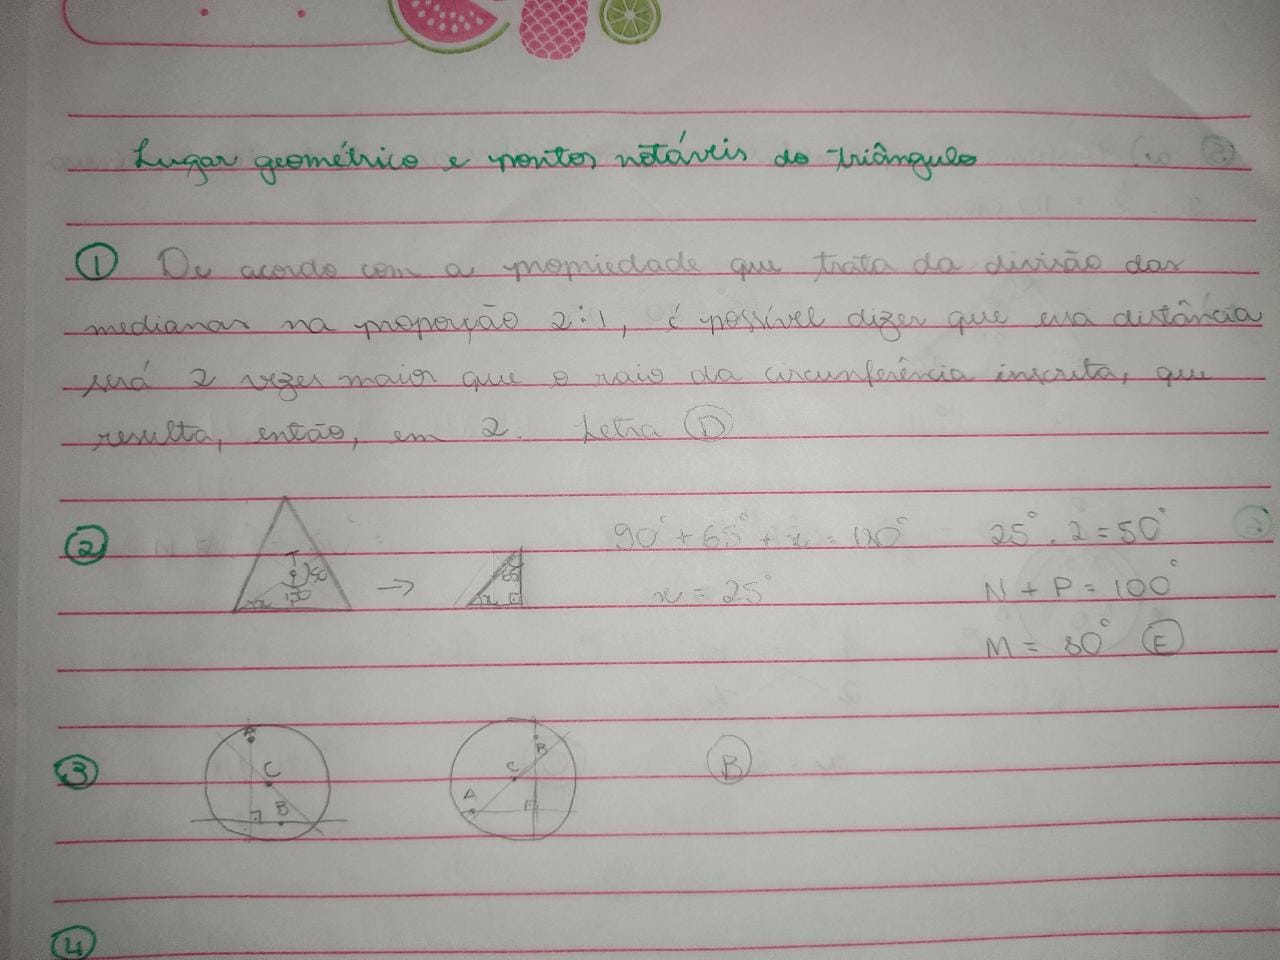 Lugar geométrico e pontos notáveis do triângulo
① De acordo com a propriedade que trata da divisão das
medianas na proporção 2:1, é possível dizer que essa distância
será 2 vezes maior que o raio da circunferência inscrita, que
resulta, então, em 2. Letra Ⓓ
② 90° + 65° + x = 180° 25° . 2 = 50°
x = 25° N + P = 100°
M = 80° Ⓔ
T
50
130
x
65
x
③ A C B A C B Ⓑ
④